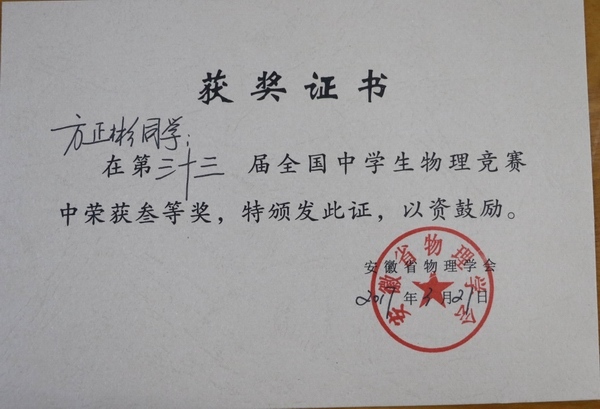 获奖证书
方正彬同学：
在第三十三届全国中学生物理竞赛
中荣获叁等奖，特颁发此证，以资鼓励。
安徽省物理学会
年 月 日
安徽省物理学会